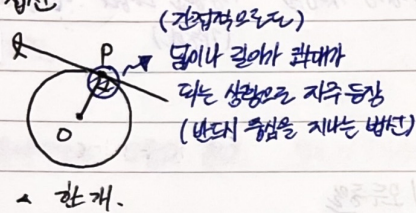 접선
(간접적으로도)
넓이나 길이가 최대가
되는 상황으로 자주 등장
(반드시 중심을 지나는 법선)
l
P
O
▲ 한 개.